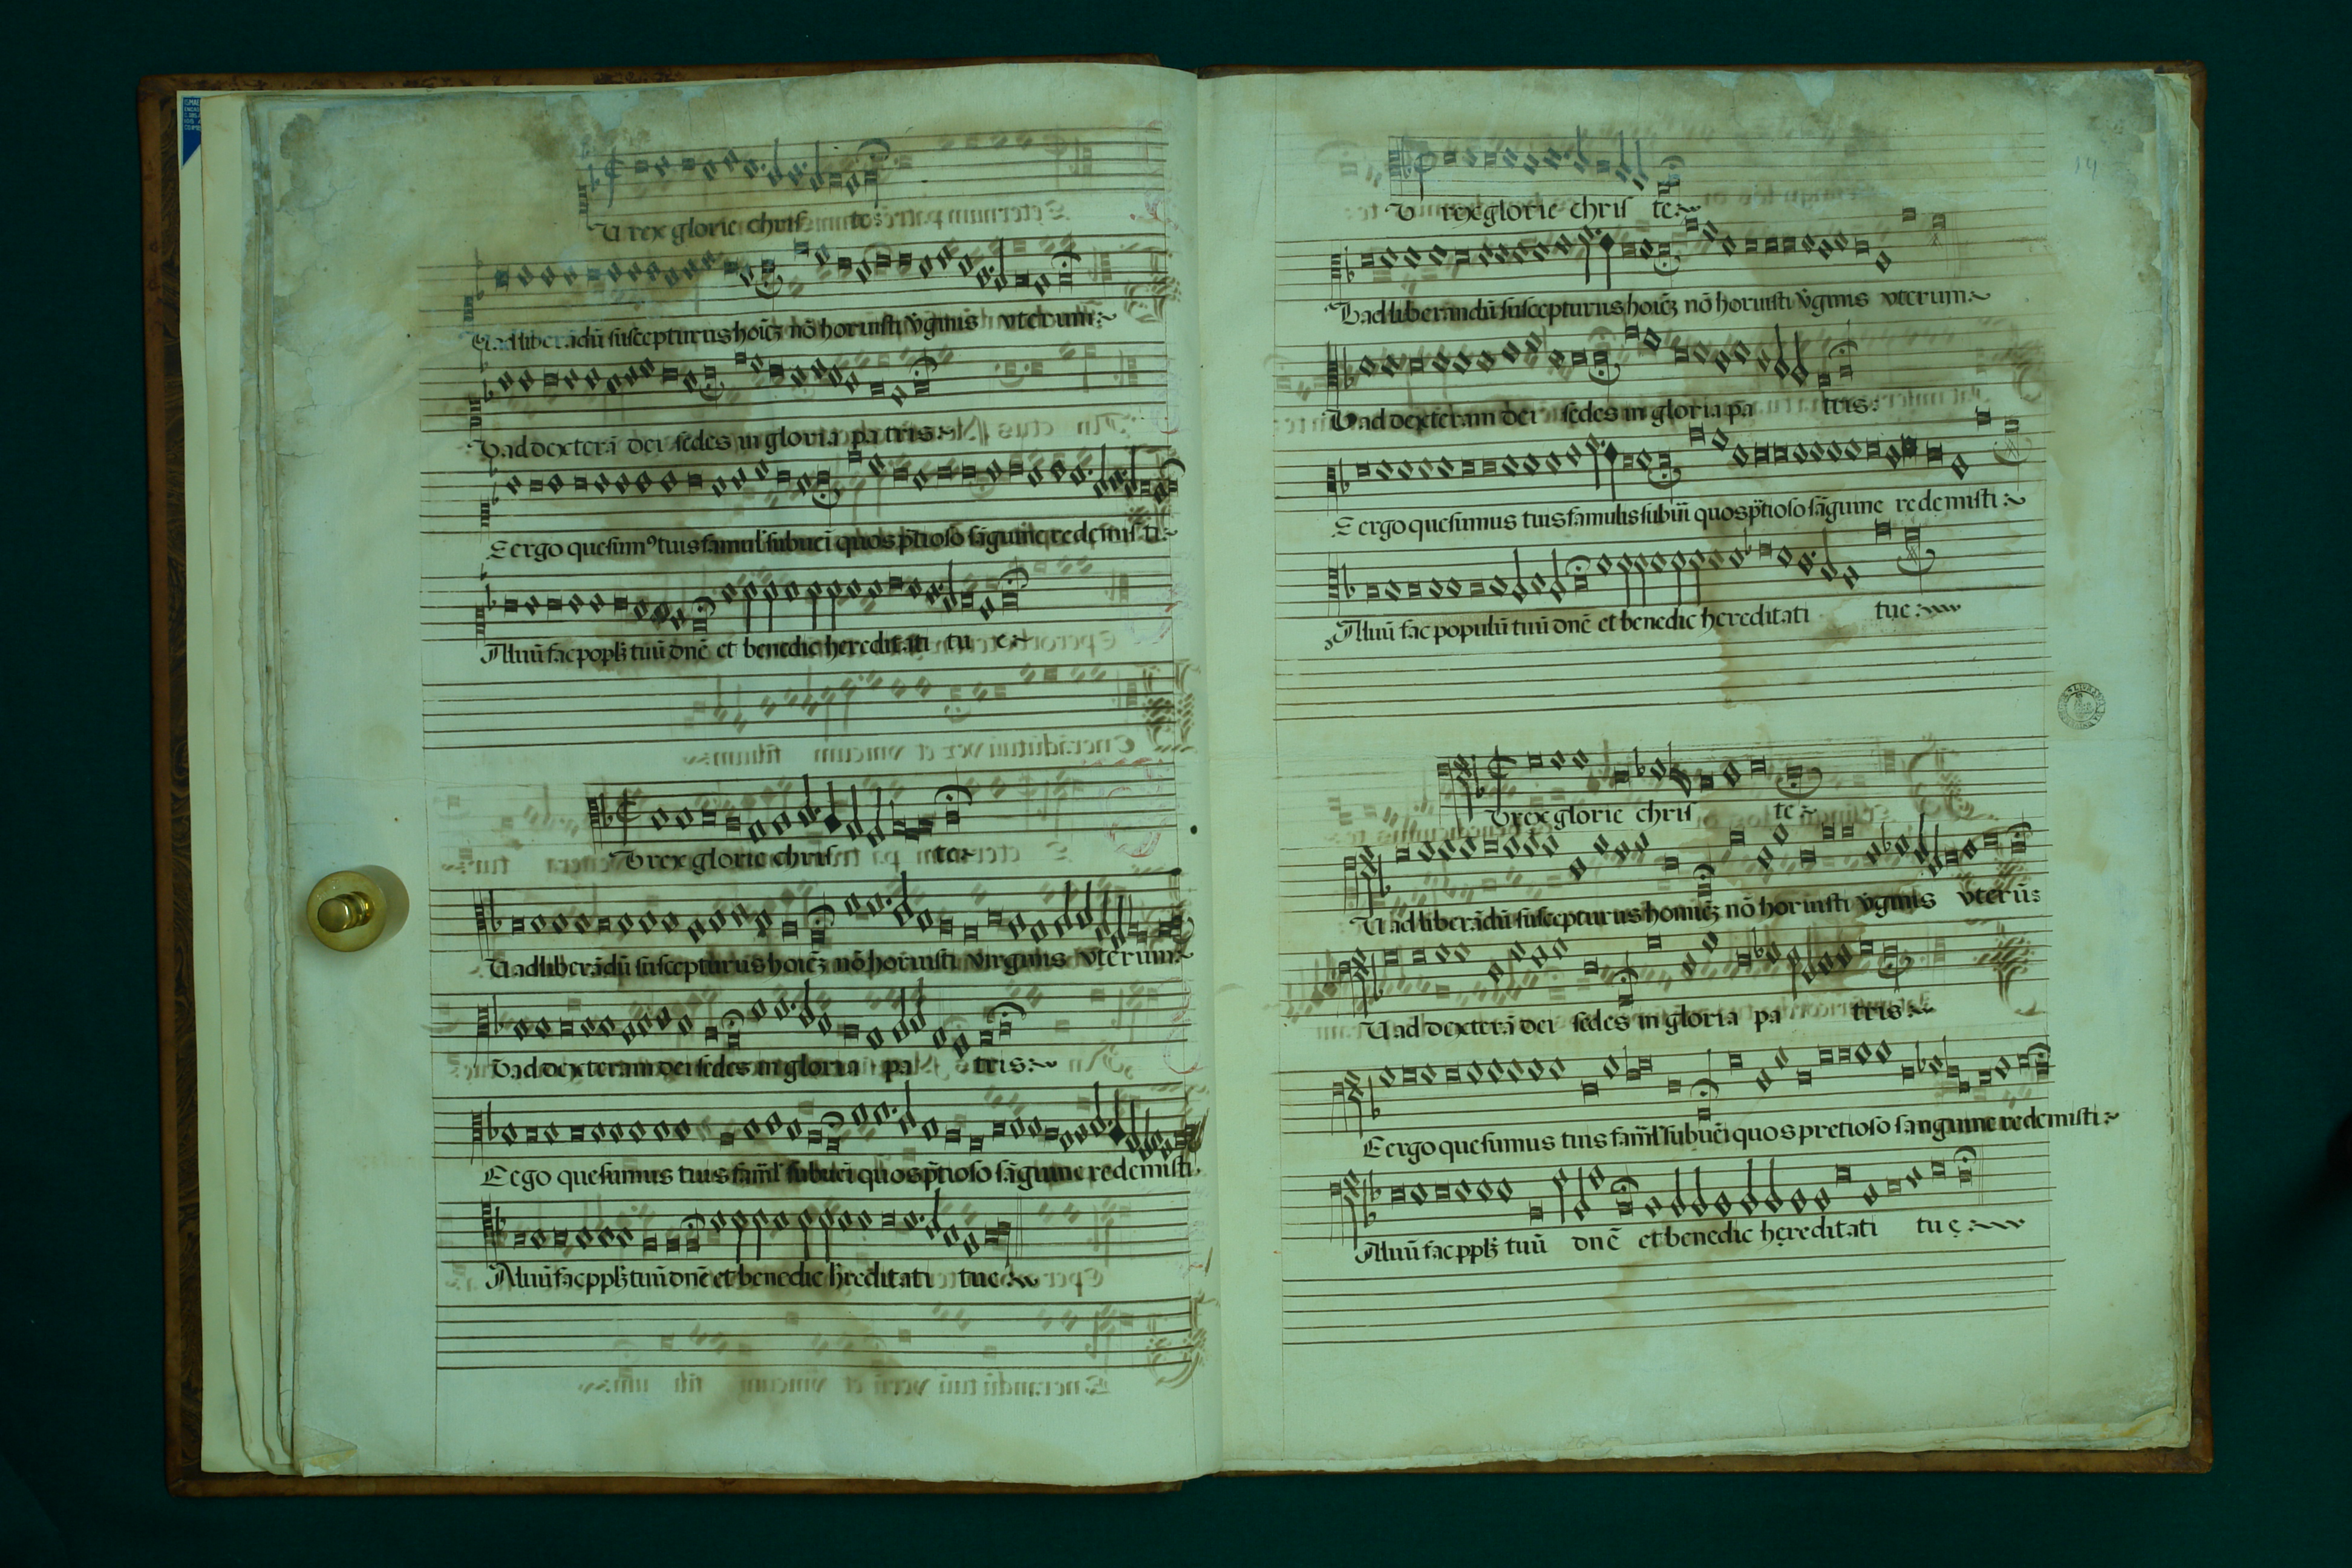 U rex glorie chris te:
U ad liberãdũ suscepturus hoiẽʒ nõ horuisti v̓ginis vterum:~
U ad dexterã dei sedes in gloria pa tris:~
E ergo quesumꝰ tuis famul' subueĩ quos p̃tioso sãguine redemis ti:~
Aluũ fac poplʒ tuũ dnẽ et benedic hereditati tu e:~
U rex glorie chris te:
U ad liberãdũ suscepturus hoiẽʒ nõ horuisti virginis vterum:~
U ad dexteram dei sedes in gloria pa tris:~
E ego quesumus tuis fam̃l' subueĩ quos p̃tioso sãguine redemisti.
Aluũ fac pplʒ tuũ dnẽ et benedic h̓reditati tue:~
U rex glorie chris te:~
U ad liberandũ suscepturus hoiẽʒ nõ horuisti v̓ginis vterum:~
U ad dexteram dei sedes in gloria pa tris:
E ergo quesumus tuis famulis subuĩ quos p̃tioso sãguine redemisti:~
Aluũ fac populũ tuũ dnẽ et benedic hereditati tue:~
U rex glorie chris te:~
U ad liberãdũ suscepturus homiẽʒ nõ horuisti v̓ginis vterũ:
U ad dexterã dei sedes in gloria pa tris:~
E ergo quesumus tuis fam̃l' subueĩ quos pretioso sanguine redemisti:~
Aluũ fac pplʒ tuũ dnẽ et benedic hereditati tuę:~